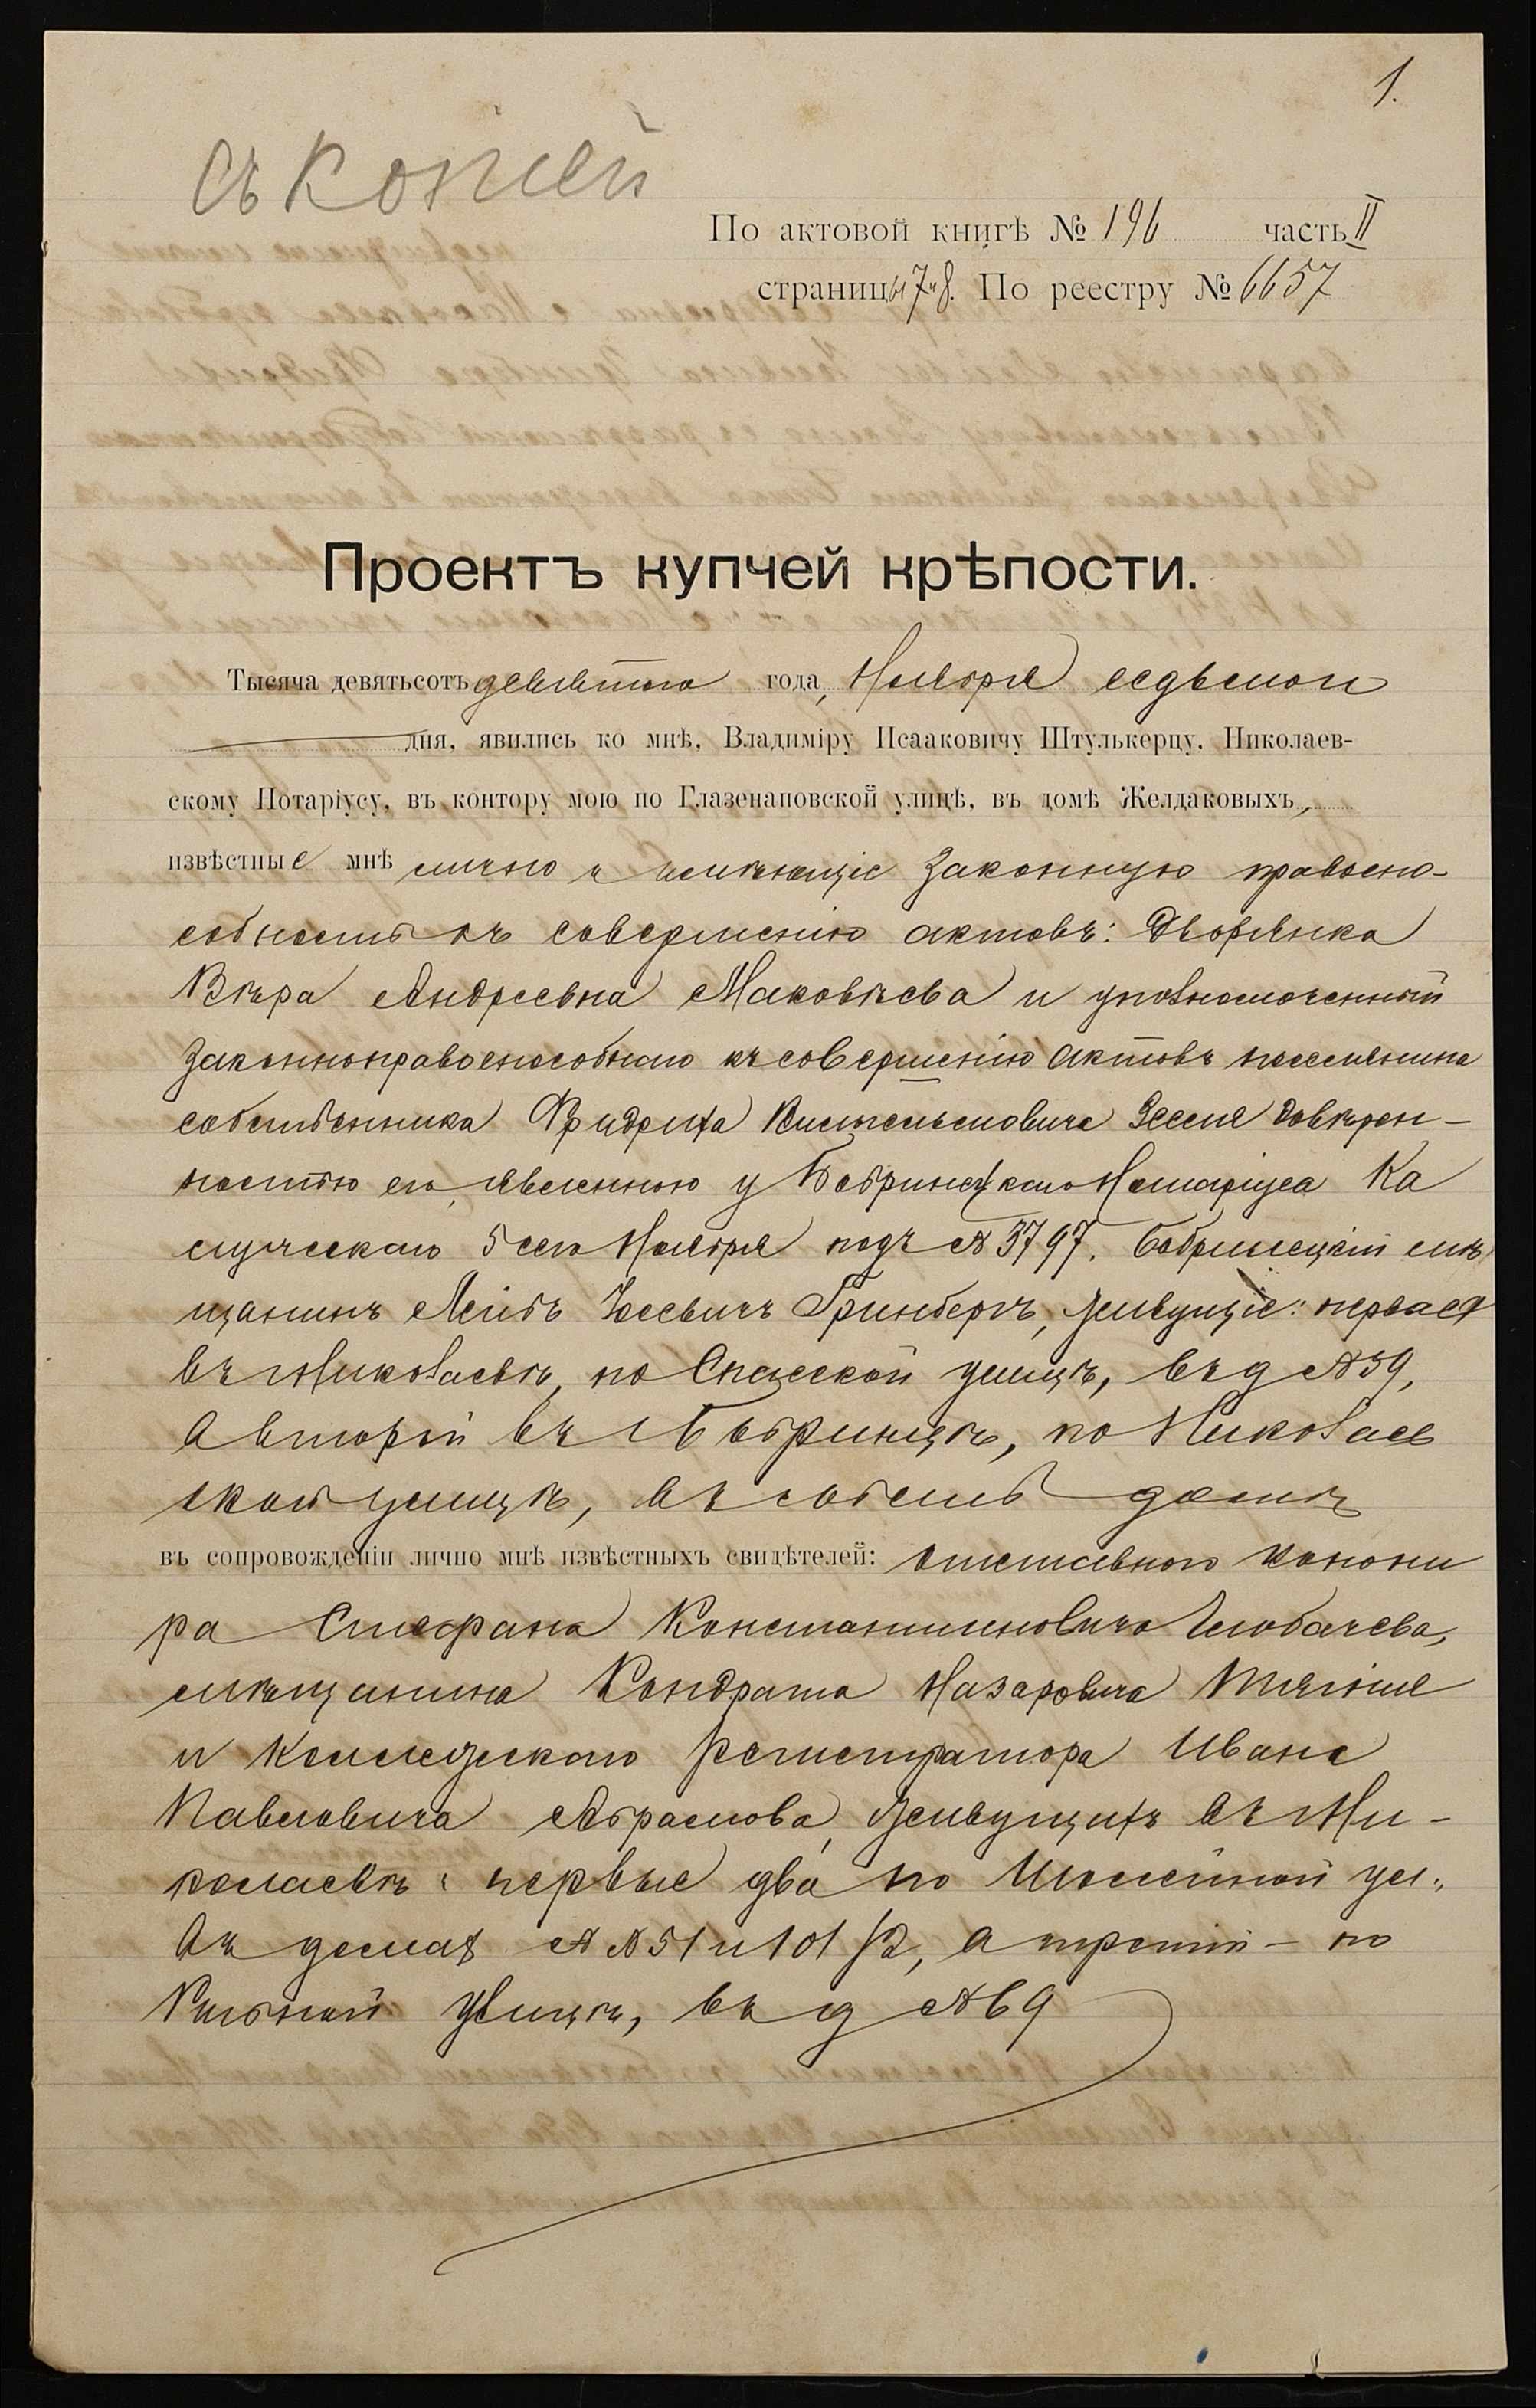 1.
Съ копіей
По актовой книгѣ № 196 часть II
страницы 7 и 8. По реестру № 6657
Проектъ купчей крѣпости.
Тысяча девятьсотъ девятого года, Ноября седьмого
дня, явились ко мнѣ, Владиміру Исааковичу Штулькерцу, Николаев-
скому Нотаріусу, въ контору мою по Глазенаповской улицѣ, въ домѣ Желдаковыхъ,
извѣстные мнѣ лично и имѣющіе законную правоспо-
собность къ совершенію актовъ: Дворянка
Вѣра Андреевна Маковѣева и уполномоченный
законноправоспособнаго къ совершенію актовъ поселянина
собственника Фридриха Вильгельмовича довѣрен-
ностью его, явленною у Бобринецкаго Нотаріуса Ка
5 сего Ноября подъ № 3797. Бобринецкій мѣ
щанинъ Лейбъ Гринбергъ, живущіе: первая
въ Николаевѣ, по Спасской улицѣ, въ д № 39,
а второй въ г Бобринцѣ, по Николаев
ской улицѣ, въ собств домѣ
въ сопровожденіи лично мнѣ извѣстныхъ свидѣтелей: отставного канони
ра Стефана Константиновича
мѣщанина Кондрата Назаровича
и Коллежскаго Регистратора Ивана
Павловича Абрамова, живущихъ въ Ни-
колаевѣ: первые два по ул.,
въ домах № № 51 и 101/2, а третій - по
улицѣ, въ д № 69